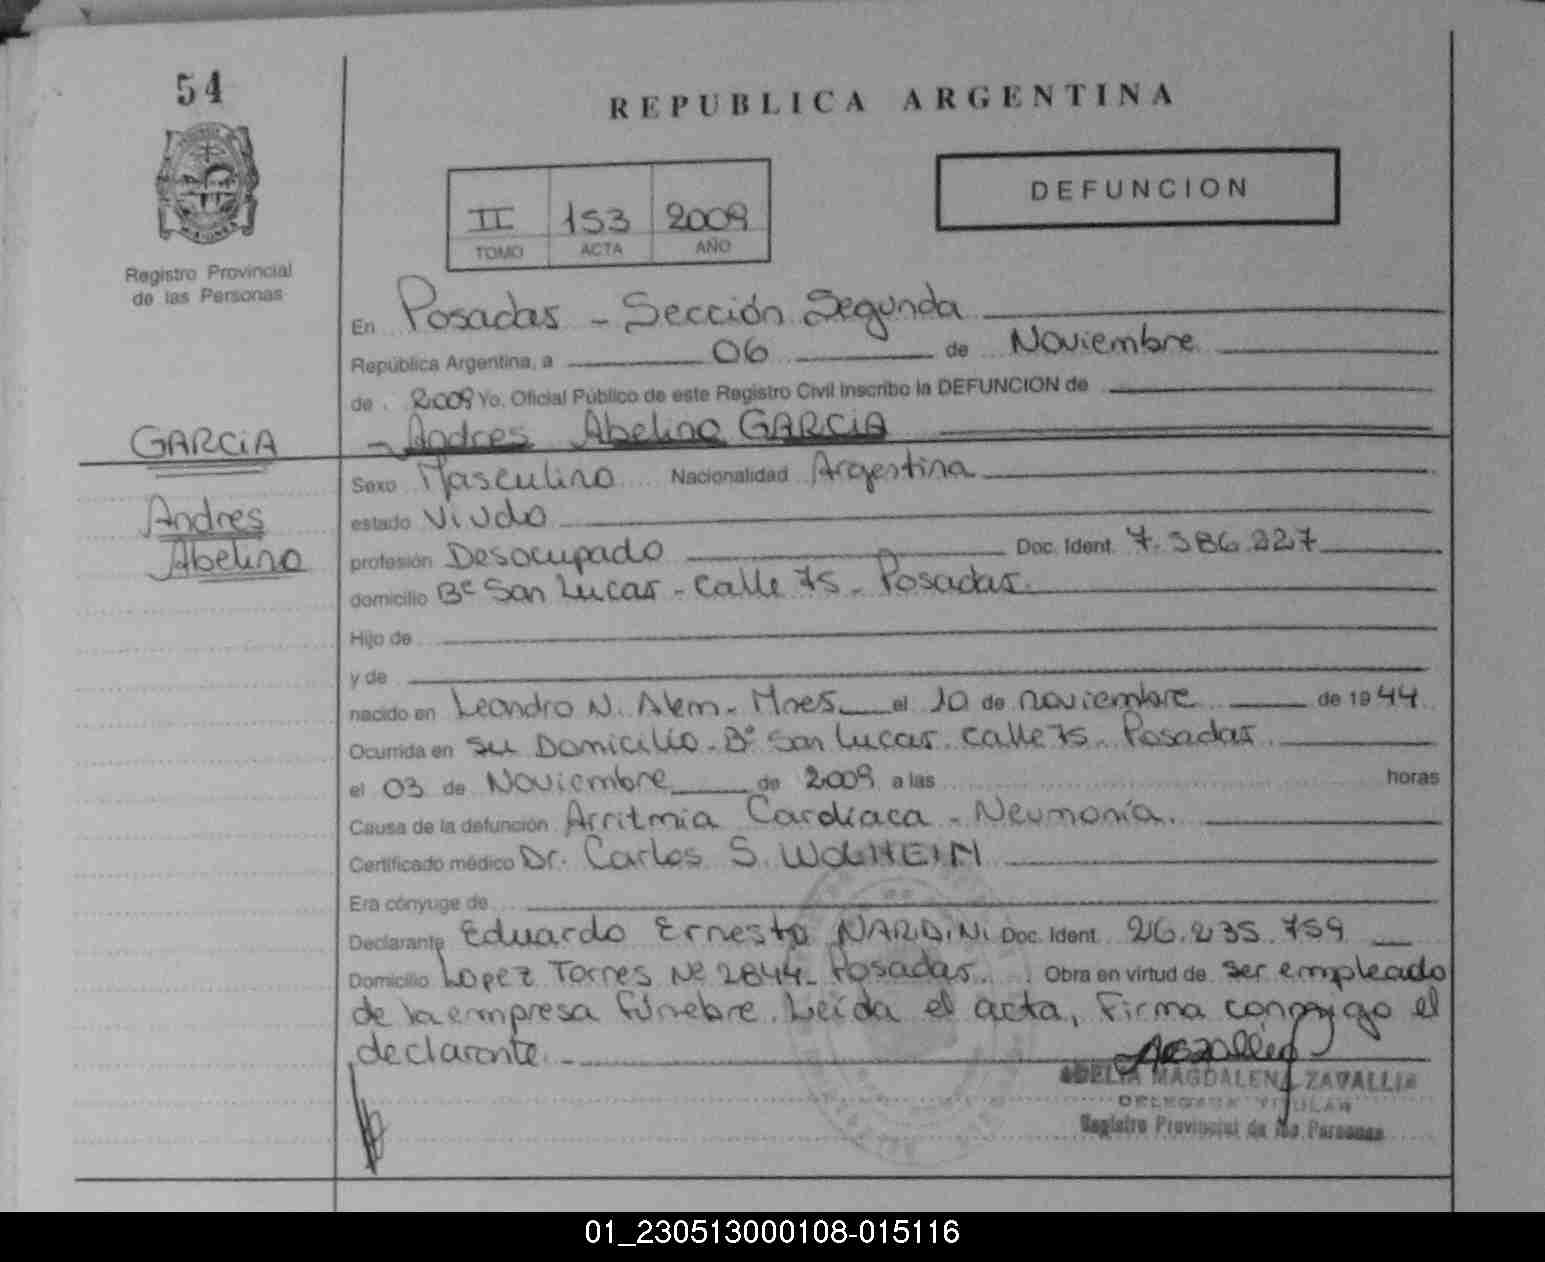 54
REPUBLICA ARGENTINA
DEFUNCION
II 153 2009
TOMO ACTA AÑO
Registro Provincial
de las Personas
En Posadas - Sección Segunda
República Argentina, a 06 de Noviembre
de 2009 Yo, Oficial Público de este Registro Civil inscribo la DEFUNCION de
GARCIA
- Andres Abelino GARCIA
Andres
Abelino
Sexo Masculino Nacionalidad Argentina
estado Viudo
profesión Desocupado Doc. Ident. 7.586.227
domicilio Bº San Lucas - Calle 75 - Posadas.
Hijo de
y de
nacido en Leandro N. Alem - Mnes el 10 de noviembre de 1944
Ocurrida en su Domicilio - Bº San Lucas. calle 75 - Posadas
el 03 de Noviembre de 2009 a las horas
Causa de la defunción Arritmia Cardíaca - Neumonía.
Certificado médico Dr. Carlos S. WOLHEIM
Era cónyuge de
Declarante Eduardo Ernesto NARDINI Doc. Ident. 26.235.759
Domicilio Lopez Torres Nº 2844 - Posadas. Obra en virtud de ser empleado
de la empresa fúnebre. Leída el acta, Firma conmigo el
declarante.
ADELIA MAGDALENA ZAVALLIA
DELEGADA TITULAR
Registro Provincial de las Personas
01_230513000108-015116